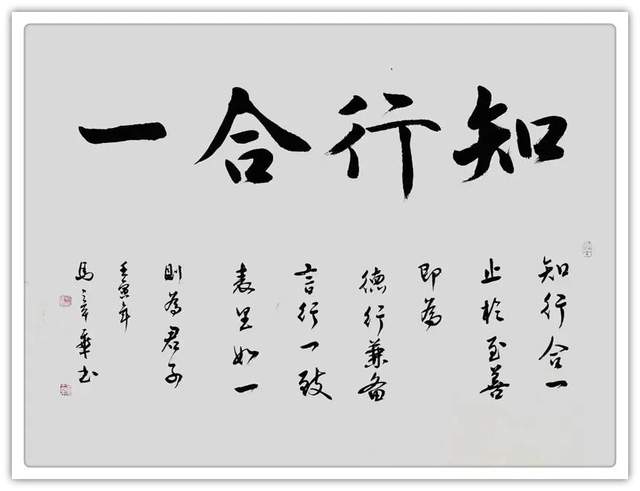 知行合一
知行合一
止於至善
即為
德行兼备
言行一致
表里如一
则為君子
壬寅年
馬 華书